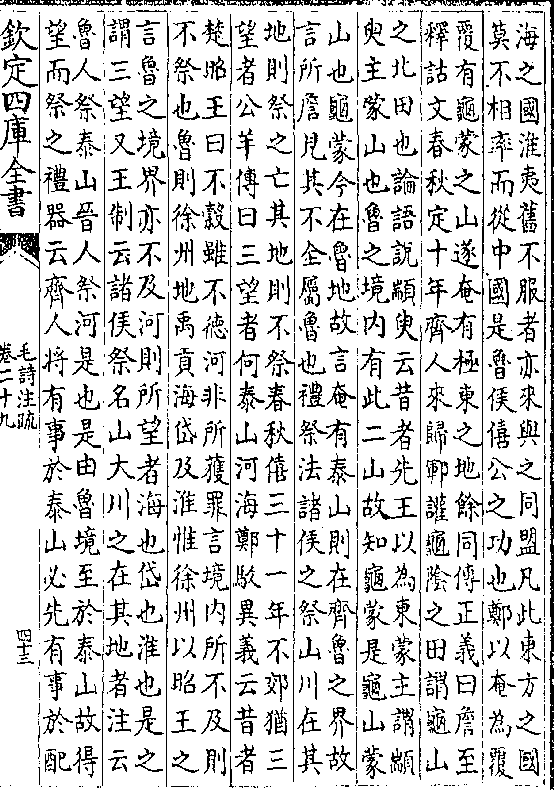 海之國淮夷舊不服者亦來與之同盟凡此東方之國
莫不相率而從中國是魯侯僖公之功也鄭以奄為覆
覆有龜蒙之山遂奄有極東之地餘同傳正義曰詹至
釋詁文春秋定十年齊人來歸鄆讙龜陰之田謂龜山
之北田也論語說顓臾云昔者先王以為東蒙主謂顓
臾主蒙山也魯之境内有此二山故知龜蒙是龜山蒙
山也龜蒙今在魯地故言奄有泰山則在齊魯之界故
言所詹見其不全屬魯也禮祭法諸侯之祭山川在其
地則祭之亡其地則不祭春秋僖三十一年不郊猶三
望者公羊傳曰三望者何泰山河海鄭駮異義云昔者
楚昭王曰不穀雖不徳河非所獲罪言境内所不及則
不祭也魯則徐州地禹貢海岱及淮惟徐州以昭王之
言魯之境界亦不及河則所望者海也岱也淮也是之
謂三望又王制云諸侯祭名山大川之在其地者注云
魯人祭泰山晉人祭河是也是由魯境至於泰山故得
望而祭之禮器云齊人將有事於泰山必先有事於配
欽定四庫全書
毛詩注疏
卷二十九
四十三